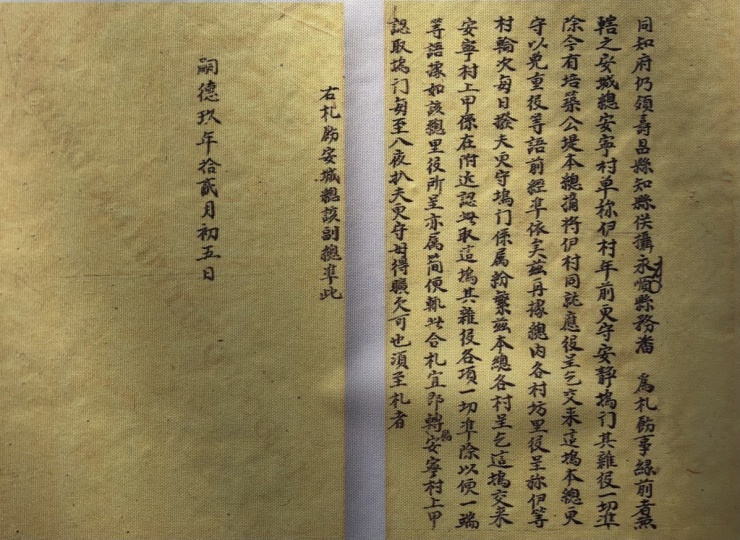 同知府仍領壽昌縣知縣俟攝永順縣務潘 爲札飭事緣前者兼
轄之安城總安寧村单称伊村年前更守安靜塢门其雜役一切準
除今有培築公堤本總摘将伊村同就應役呈乞交來這塢本總更
守以免重役等語前經準依矣茲再據總内各村坊里役呈称伊等
村輪次每日撥夫更守塢门係属紛繁茲本總各村呈乞這塢交來
安寧村上甲係在附近認此取這塢其雜役各項一切準除以便一端
等語據如該總里役所呈亦属簡便輒此合札宜即轉飭安寧村上甲
認取塢门每至入夜扒夫更守毋得曠欠可也須至札者
右札飭安城總該副總準此
嗣德玖年拾貳月初五日